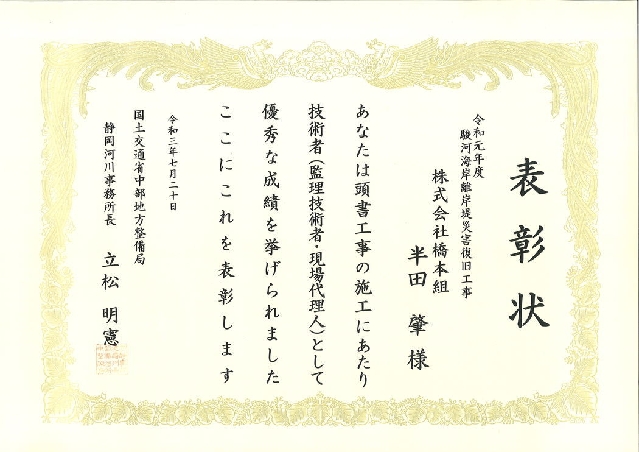 表彰状
令和元年度
駿河海岸離岸堤災害復旧工事
株式会社橋本組
半田 肇 様
あなたは頭書工事の施工にあたり
技術者(監理技術者・現場代理人)として
優秀な成績を挙げられました
ここにこれを表彰します
令和三年七月二十日
国土交通省中部地方整備局
静岡河川事務所長 立松 明憲